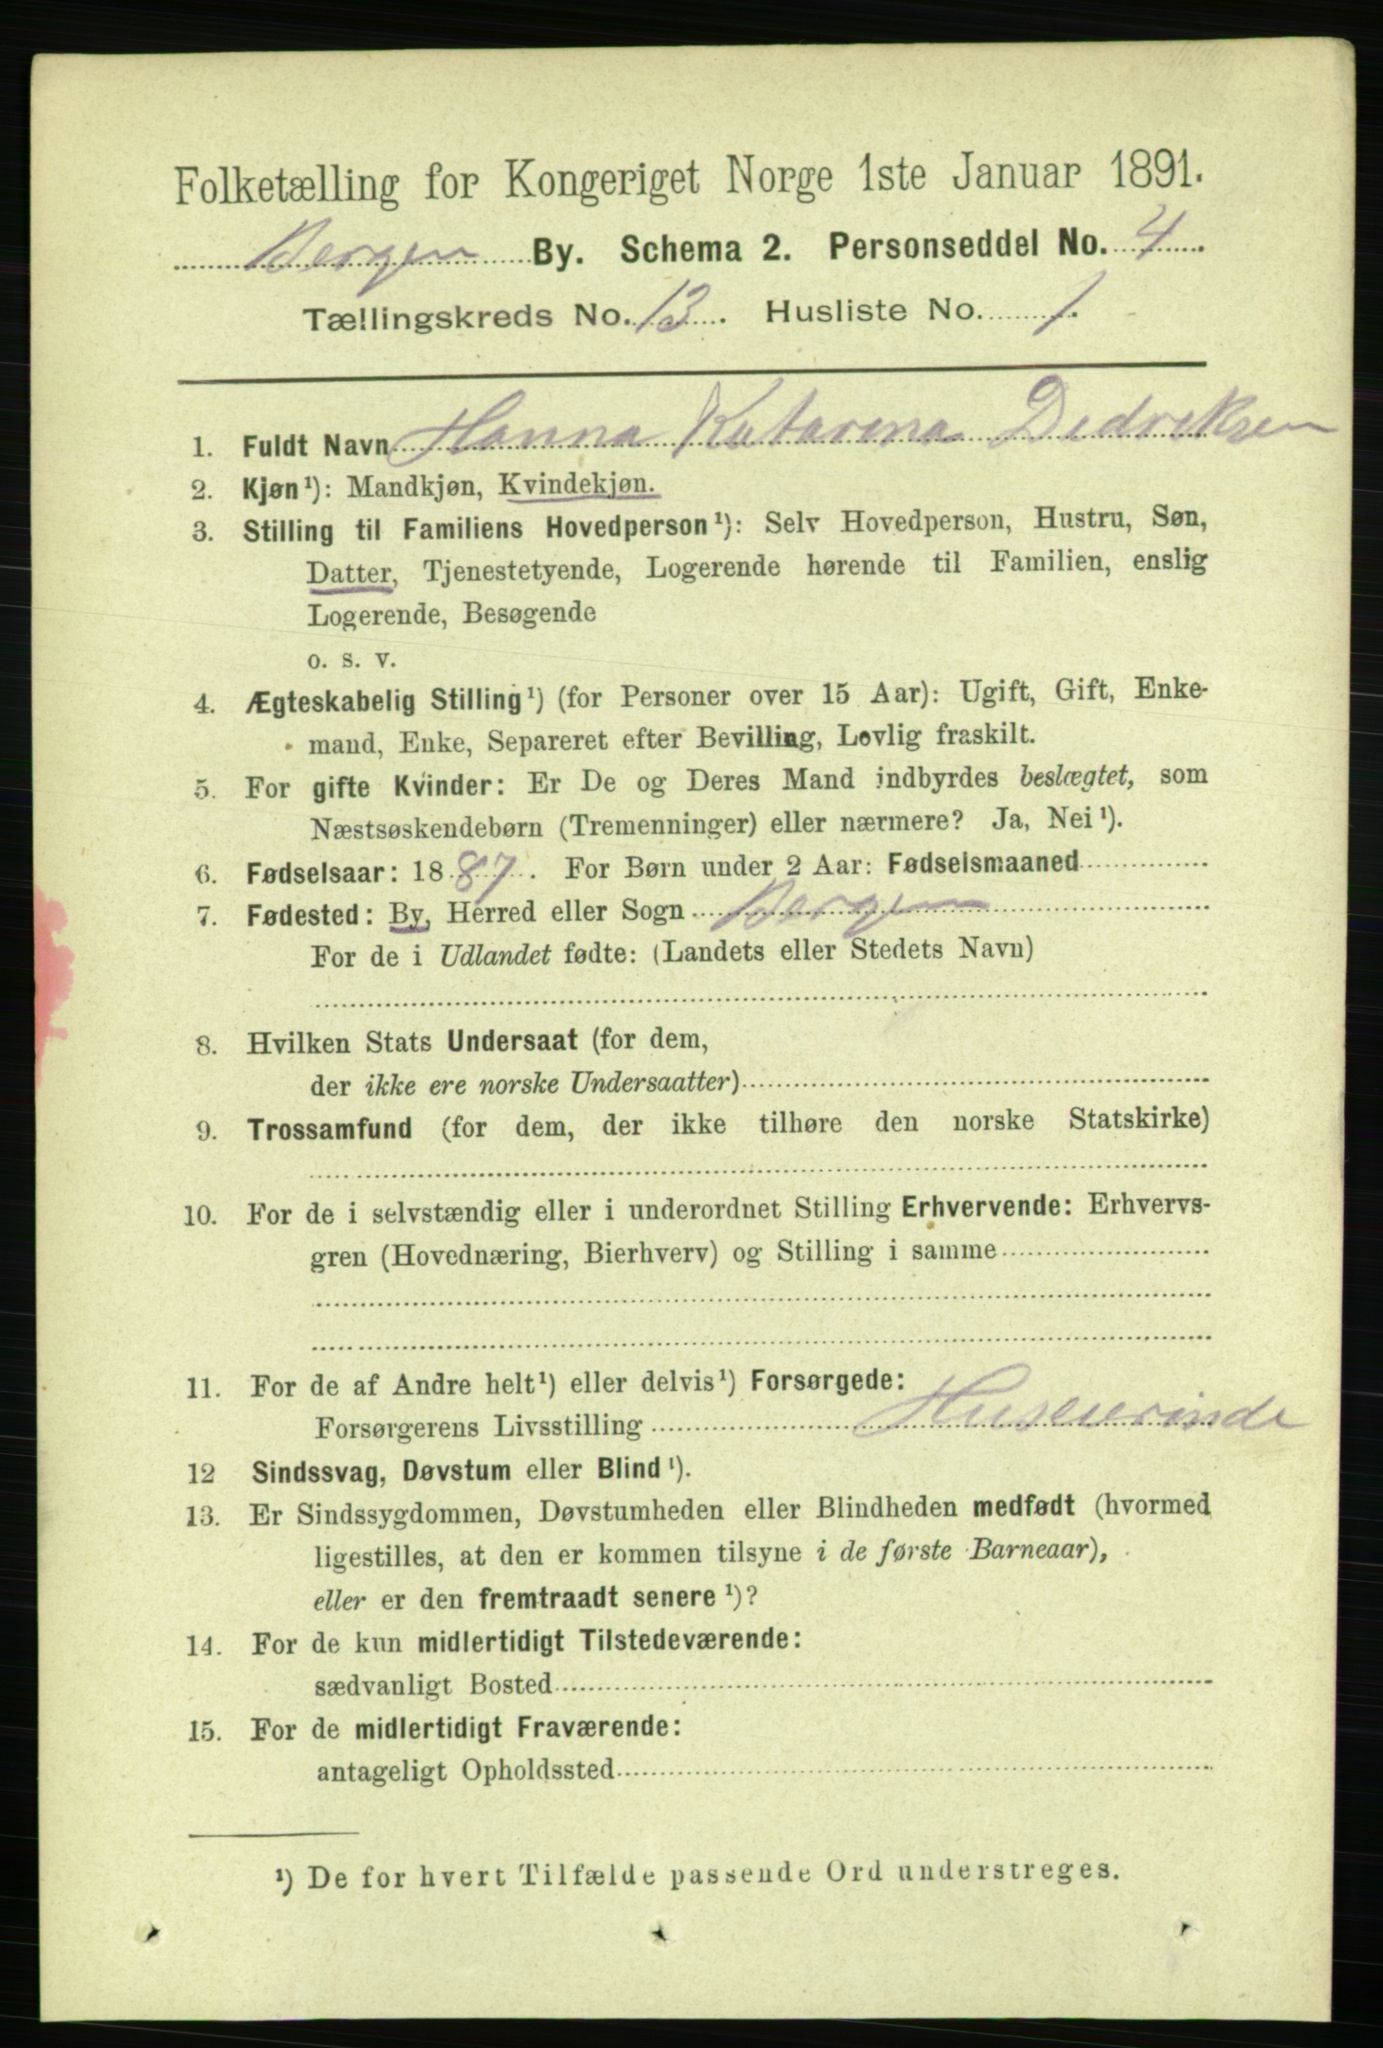 Folketælling for Kongeriget Norge 1ste Januar 1891.
Bergen By. Schema 2. Personseddel No. 4
Tællingskreds No. 13. Husliste No. 1.
1. Fuldt Navn Hanna Katarina Dedreksen
2. Kjøn¹): Mandkjøn, Kvindekjøn.
3. Stilling til Familiens Hovedperson¹): Selv Hovedperson, Hustru, Søn,
Datter, Tjenestetyende, Logerende hørende til Familien, enslig
Logerende, Besøgende
o. s. v.
4. Ægteskabelig Stilling¹) (for Personer over 15 Aar): Ugift, Gift, Enke-
mand, Enke, Separeret efter Bevilling, Lovlig fraskilt.
5. For gifte Kvinder: Er De og Deres Mand indbyrdes beslægtet, som
Næstsøskendebørn (Tremenninger) eller nærmere? Ja, Nei¹).
6. Fødselsaar: 1887. For Børn under 2 Aar: Fødselsmaaned
7. Fødested: By, Herred eller Sogn Bergen
For de i Udlandet fødte: (Landets eller Stedets Navn)
8. Hvilken Stats Undersaat (for dem,
der ikke ere norske Undersaatter)
9. Trossamfund (for dem, der ikke tilhøre den norske Statskirke)
10. For de i selvstændig eller i underordnet Stilling Erhvervende: Erhvervs-
gren (Hovednæring, Bierhverv) og Stilling i samme
11. For de af Andre helt¹) eller delvis¹) Forsørgede:
Forsørgerens Livsstilling
12 Sindssvag, Døvstum eller Blind¹).
13. Er Sindssygdommen, Døvstumheden eller Blindheden medfødt (hvormed
ligestilles, at den er kommen tilsyne i de første Barneaar),
eller er den fremtraadt senere¹)?
14. For de kun midlertidigt Tilstedeværende:
sædvanligt Bosted
15. For de midlertidigt Fraværende:
antageligt Opholdssted
¹) De for hvert Tilfælde passende Ord understreges.